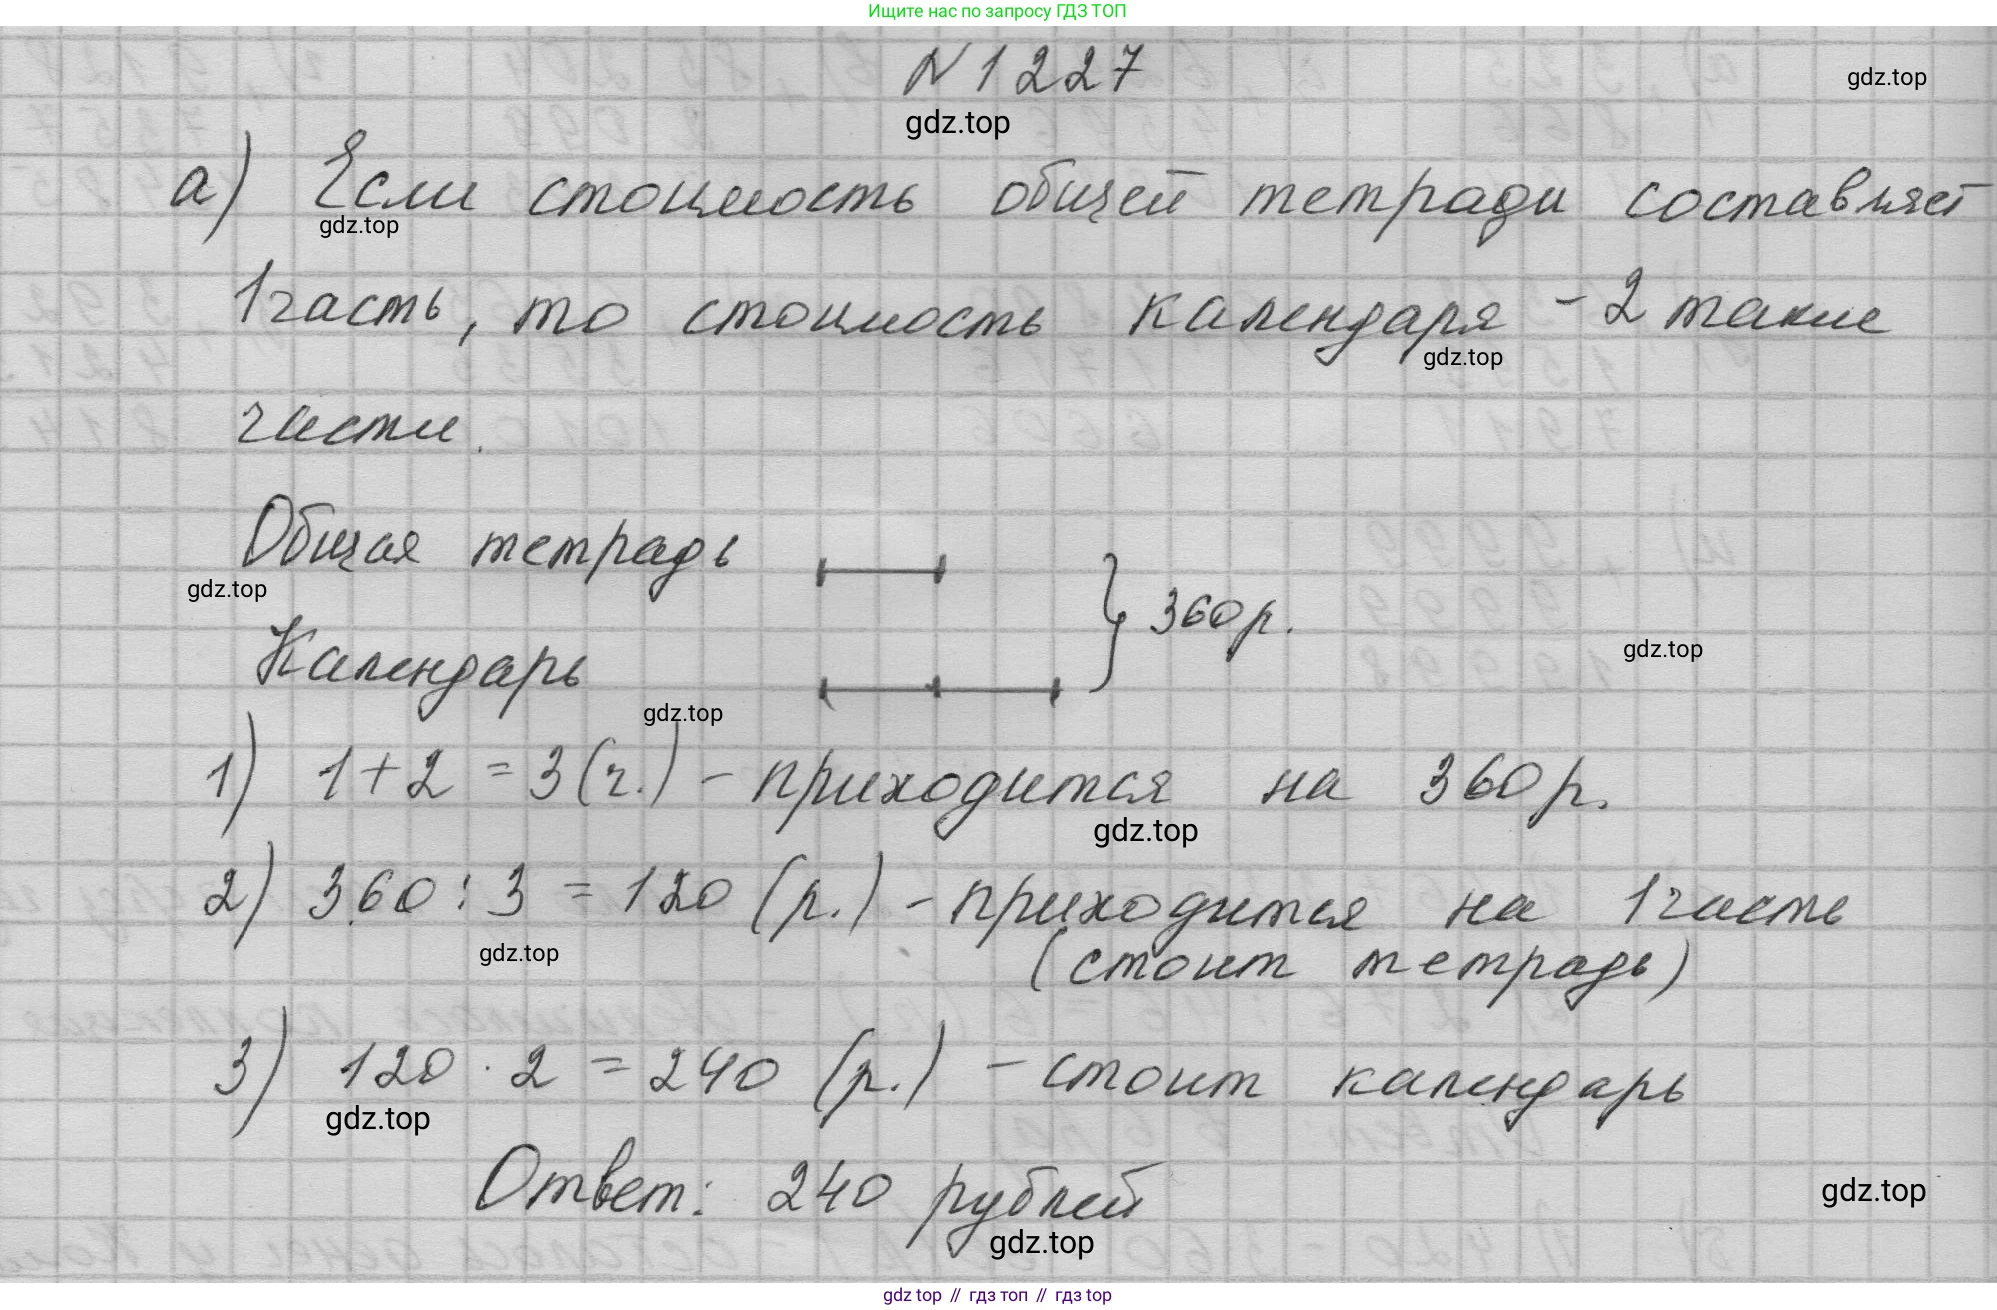 Ищите нас по запросу ГДЗ ТОП
N 1227
gdz.top
gdz.top
а) Если стоимость общей тетради составляет
gdz.top
1 часть, то стоимость календаря - 2 такие
gdz.top
части.
Общая тетрадь
gdz.top
360 р.
Календарь
gdz.top
gdz.top
1) 1 + 2 = 3 (ч.) - приходится на 360 р.
gdz.top
2) 360 : 3 = 120 (р.) - приходится на 1 часть
gdz.top
(стоит тетрадь)
3) 120 · 2 = 240 (р.) - стоит календарь
gdz.top
Ответ: 240 рублей
gdz.top
gdz.top
gdz top // гдз топ // гдз top